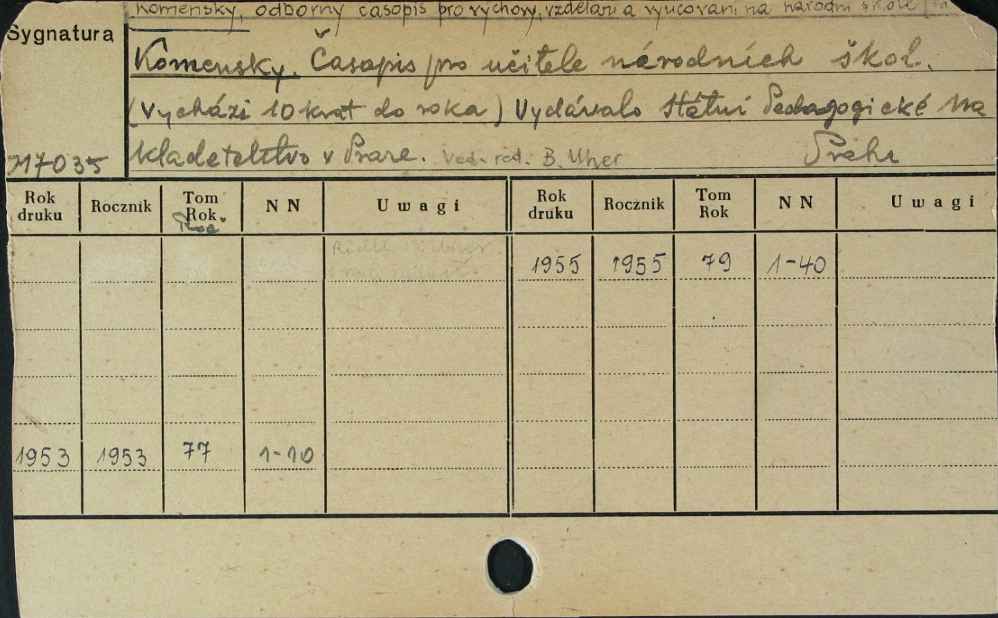 Komensky, odborny časopis pro vychovu, vzdělani a vyučovani na narodni škole
Sygnatura
Komensky. Časopis pro učitele národních škol.
(Vychází 10 krat do roka) Vydávalo Státni Pedagogické Na
kladatelstvo v Praze. Ved. red. B. Uher Praha
717035
Rok druku Rocznik Tom Rok NN Uwagi Rok druku Rocznik Tom Rok NN Uwagi
Roc.
1955 1955 79 1-40
1953 1953 77 1-10